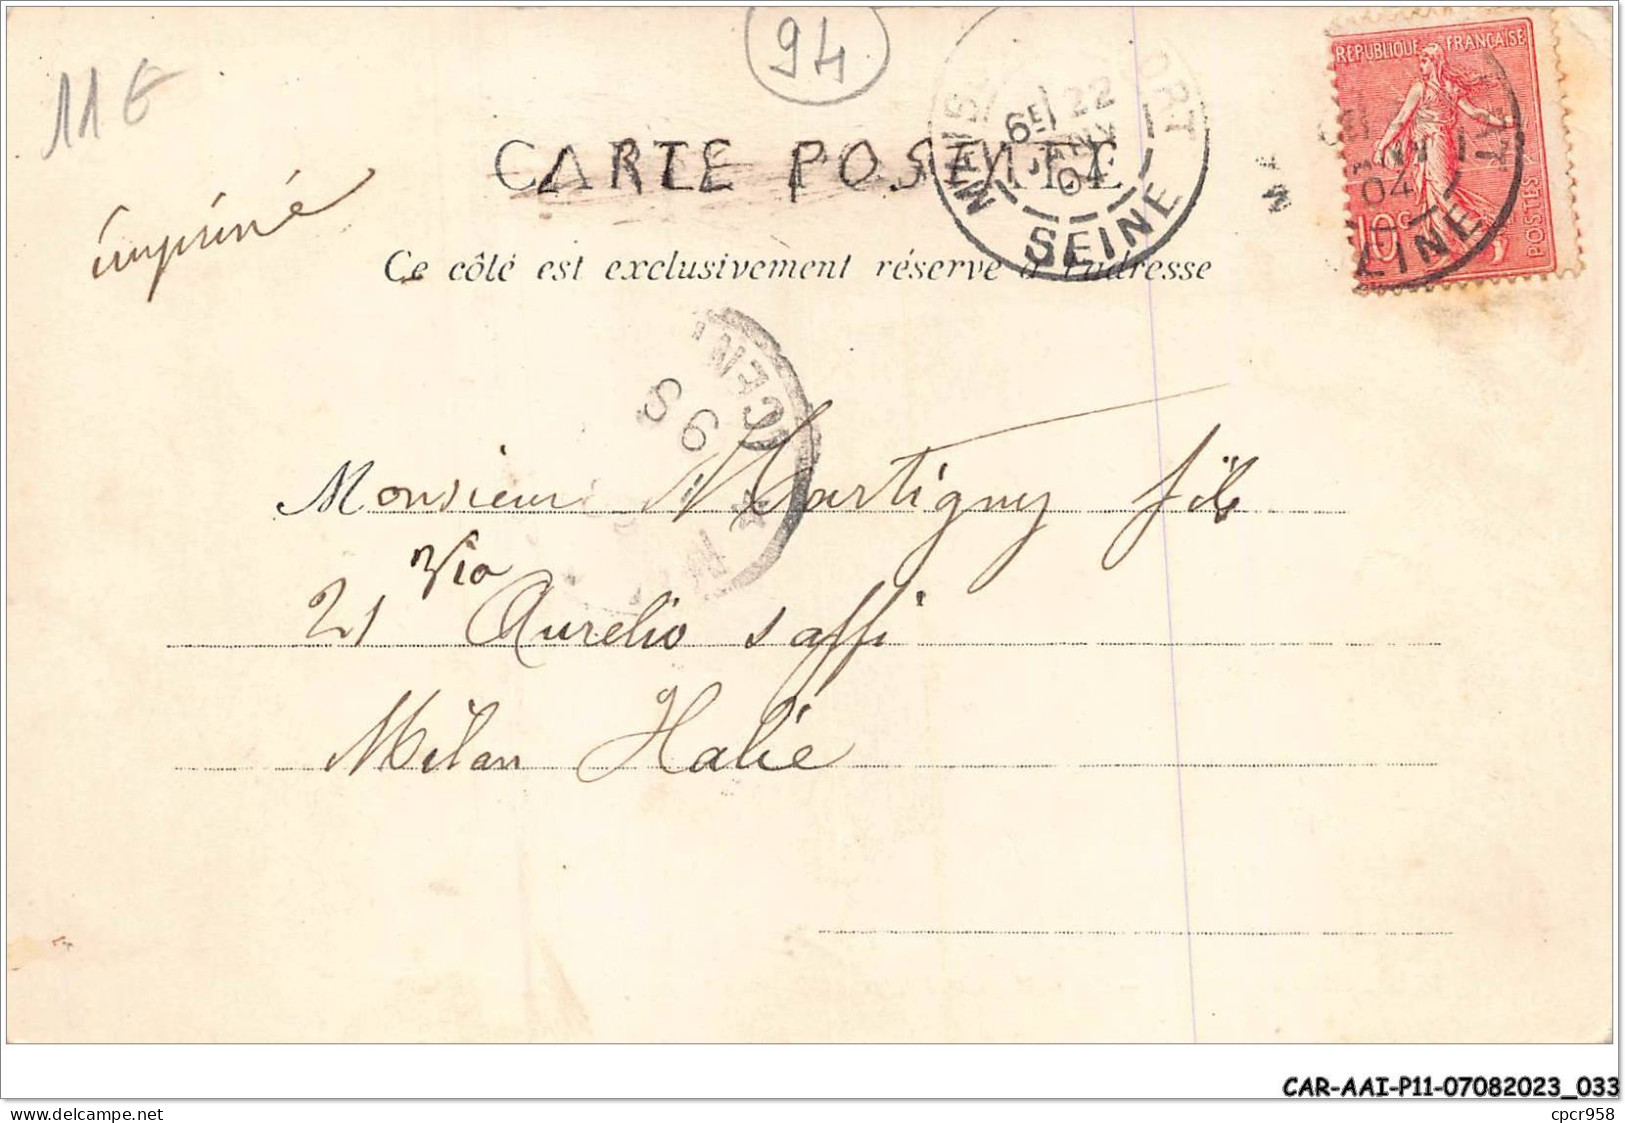 94
11 €
RÉPUBLIQUE FRANÇAISE
10c
POSTES
6E 22
JANV
04
SEINE
04
CARTE POSTALE
imprimé
Ce côté est exclusivement réservé à l'adresse
9 S
Monsieur Martigny fils
21 Via Aurelio Saffi
Milan Italie
CAR-AAI-P11-07082023_033
www.delcampe.net
cpcr958